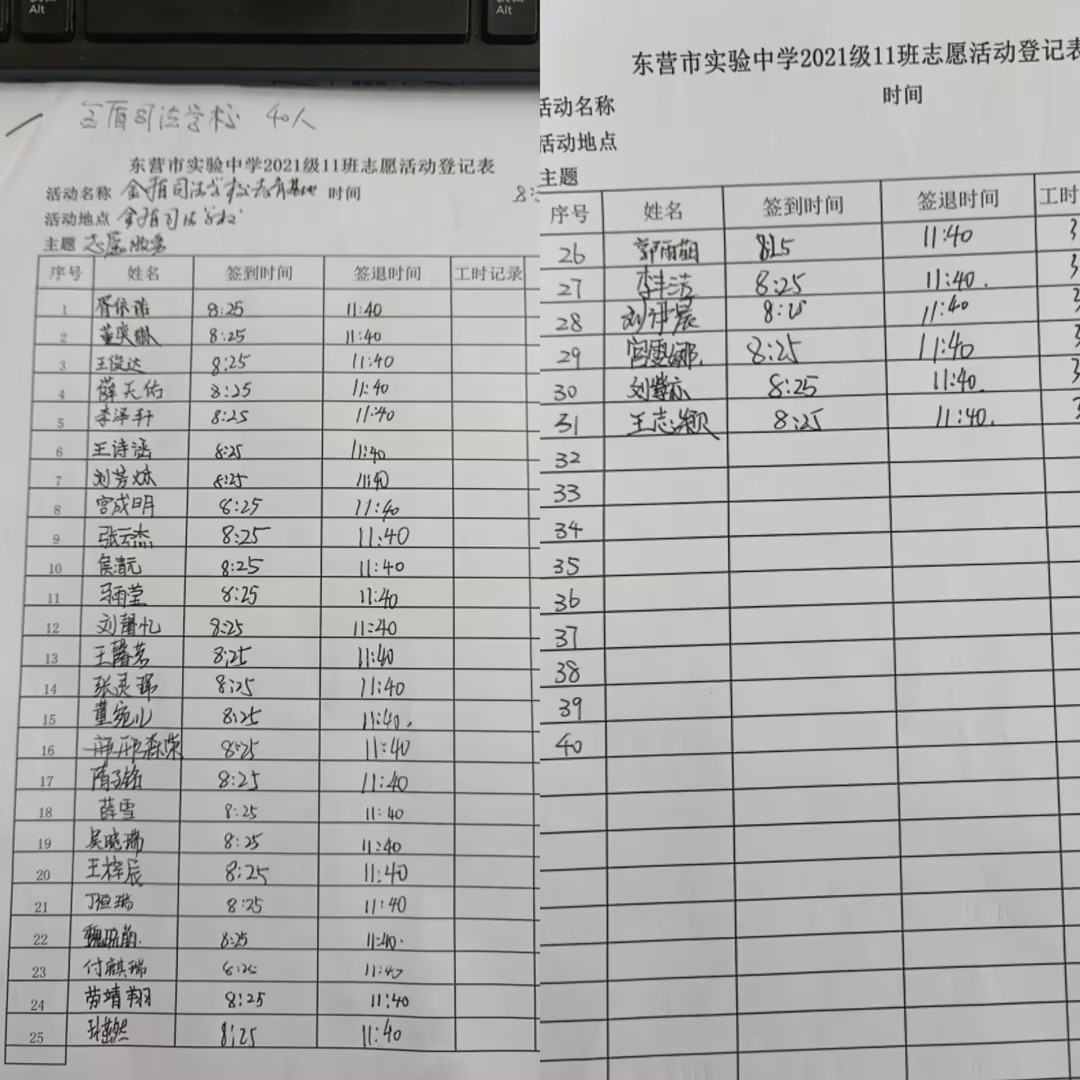 Alt
Alt
金盾司法学校 40人
东营市实验中学2021级11班志愿活动登记表
活动名称 金盾司法学校志育基地 时间
活动地点 金盾司法学校
主题 志愿服务
序号 姓名 签到时间 签退时间 工时记录
1 胥依诺 8:25 11:40
2 董奕琳 8:25 11:40
3 王俊达 8:25 11:40
4 薛天佑 8:25 11:40
5 李泽轩 8:25 11:40
6 王诗涵 8:25 11:40
7 刘芳妶 8:25 11:40
8 宫成明 8:25 11:40
9 张云杰 8:25 11:40
10 侯清元 8:25 11:40
11 马雨莹 8:25 11:40
12 刘馨忆 8:25 11:40
13 王馨茗 8:25 11:40
14 张灵瑞 8:25 11:40
15 董宛儿 8:25 11:40.
16 森荣 8:25 11:40
17 隋子铭 8:25 11:40
18 薛雪 8:25 11:40
19 吴晓瑞 8:25 11:40
20 王梓辰 8:25 11:40
21 丁恒瑞 8:25 11:40
22 魏 8:25 11:40.
23 付麒瑞 8:25 11:40
24 劳靖翔 8:25 11:40
25 8:25 11:40
东营市实验中学2021级11班志愿活动登记表
时间
活动名称
活动地点
主题
序号 姓名 签到时间 签退时间 工时
26 郭雨萌 8:25 11:40 3
27 李丰洁 8:25 11:40. 3
28 刘伊晨 8:25 11:40 3
29 宫雯娜. 8:25 11:40 3
30 刘紫亦 8:25 11:40. 3
31 王志颖 8:25 11:40. 3
32
33
34
35
36
37
38
39
40